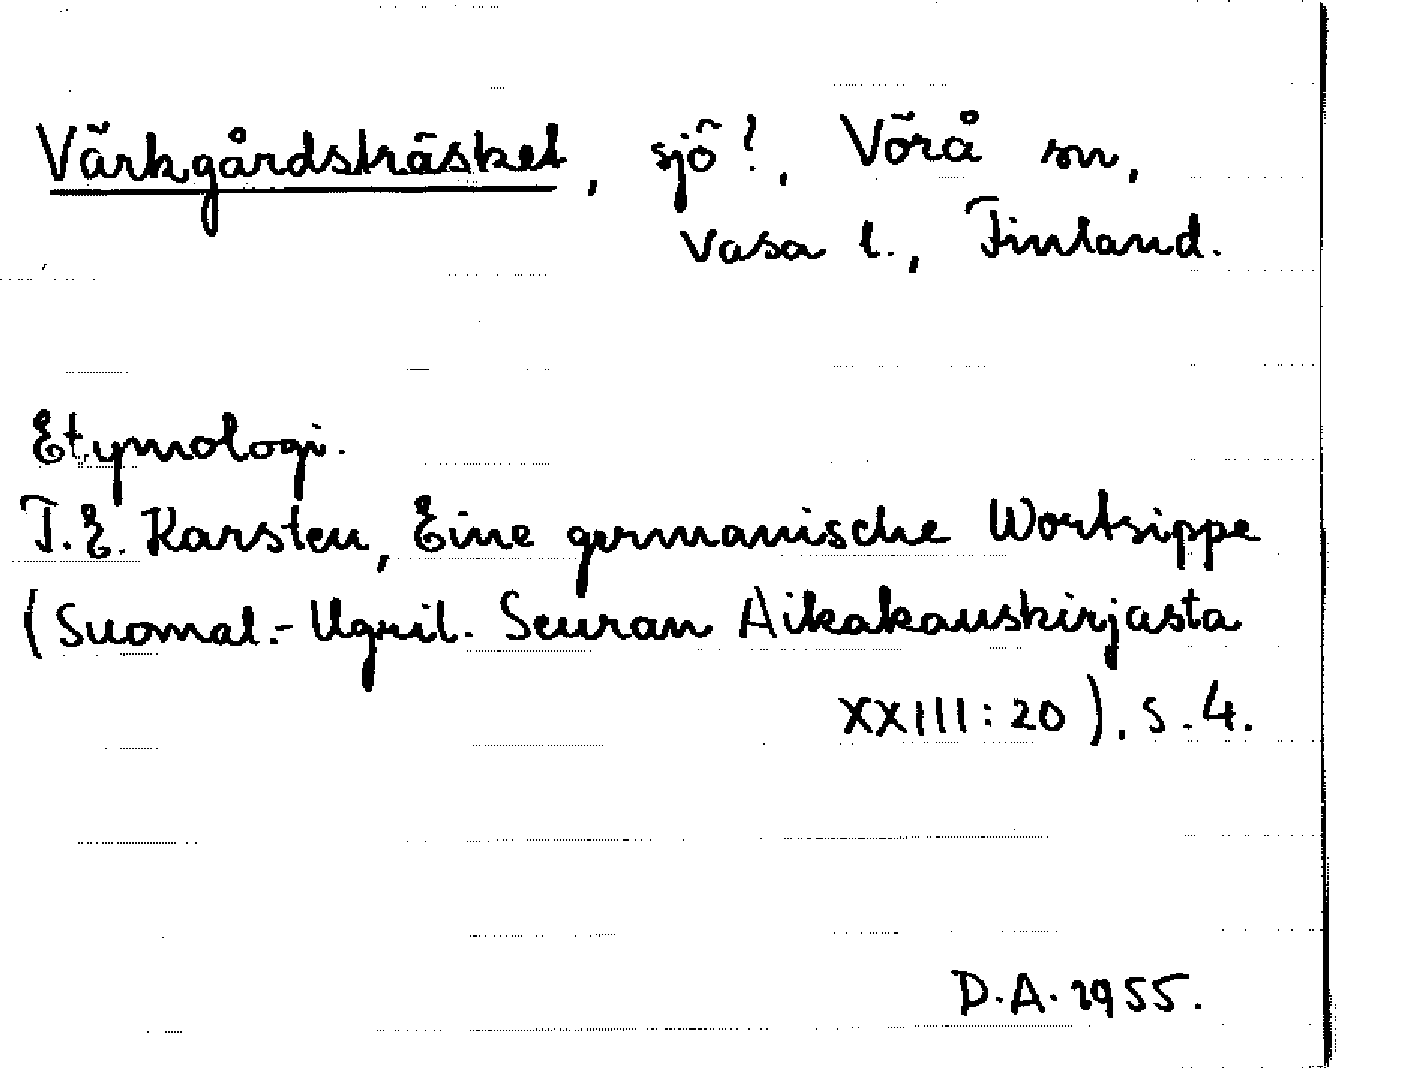 Värkgårdsträsket, sjö?, Vörå sn,
Vasa l., Finland.
Etymologi.
T.E. Karsten, Eine germanische Wortsippe
(Suomal.-Ugril. Seuran Aikakauskirjasta
XXIII:20). s. 4.
D.A. 1955.